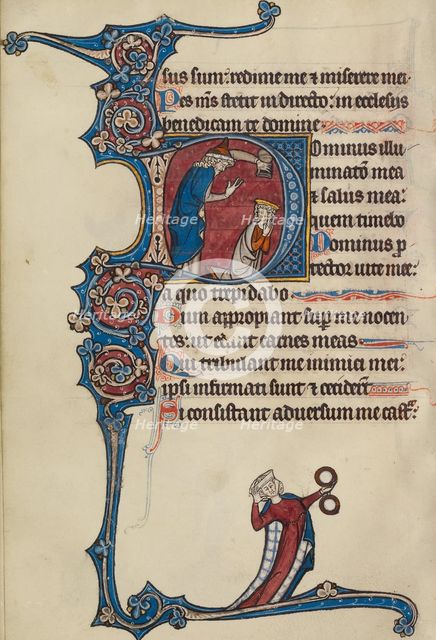 sus sum: redime me ⁊ miserere mei.
Pes m̅s stetit in directo: in ecclesijs
benedicam te domine
Dominus illu
minatō mea
⁊ salus mea:
quem timebo
Dominus p
tector vite mee:
a quo trepidabo
Dum appropiant sup̱ me nocen
tes: ut edant carnes meas
Qui tribulant me inimici mei:
ipsi infirmati sunt ⁊ cecider̅t
Si consistant adversum me cast̅:
Heritage
Heritage
Heritage
Heritage
Heritage
Heritage